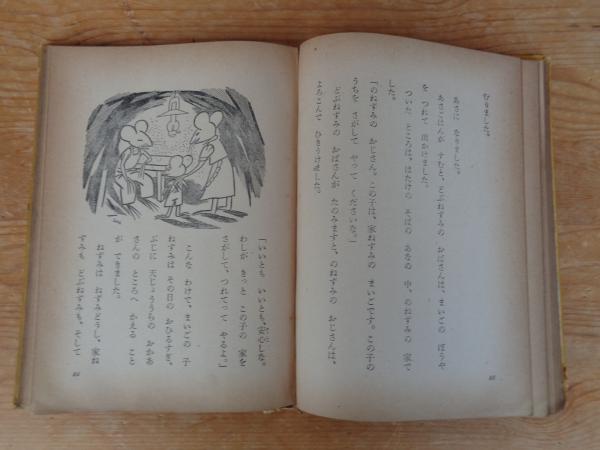 むりました。
あさに なりました。
あさごはんが すむと、どぶねずみの おばさんは、まいごの ぼうや
を つれて 出かけました。
ついた ところは、はたけの そばの あなの 中、のねずみの 家で
した。
「のねずみの おじさん。この子は、家ねずみの まいごです。この子の
うちを さがして やって くださいな。」
どぶねずみの おばさんが たのみますと、のねずみの おじさんは、
よろこんで ひきうけました。
「いいとも いいとも、安心しな。
わしが きっと この子の 家を
さがして、つれてって やるよ。」
こんな わけで、まいごの 子
ねずみは その日の おひるすぎ、
ぶじに 天じょうらの おかあ
さんの ところへ かえる こと
が できました。
ねずみは ねずみどうし、家ね
ずみも どぶねずみも、そして